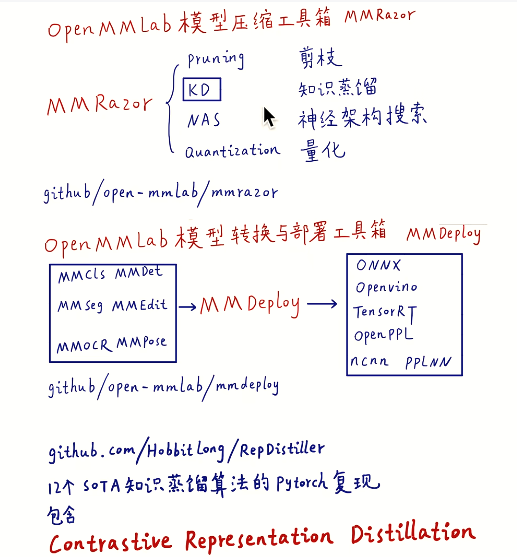 OpenMMLab 模型压缩工具箱 MMRazor
Pruning 剪枝
MMRazor KD 知识蒸馏
NAS 神经架构搜索
Quantization 量化
github/open-mmlab/mmrazor
OpenMMLab 模型转换与部署工具箱 MMDeploy
MMCls MMDet
MMSeg MMEdit
MMOCR MMPose
→ MMDeploy →
ONNX
Openvino
TensorRT
OpenPPL
ncnn PPLNN
github/open-mmlab/mmdeploy
github.com/HobbitLong/RepDistiller
12个 SOTA知识蒸馏算法的 Pytorch 复现
包含
Contrastive Representation Distillation